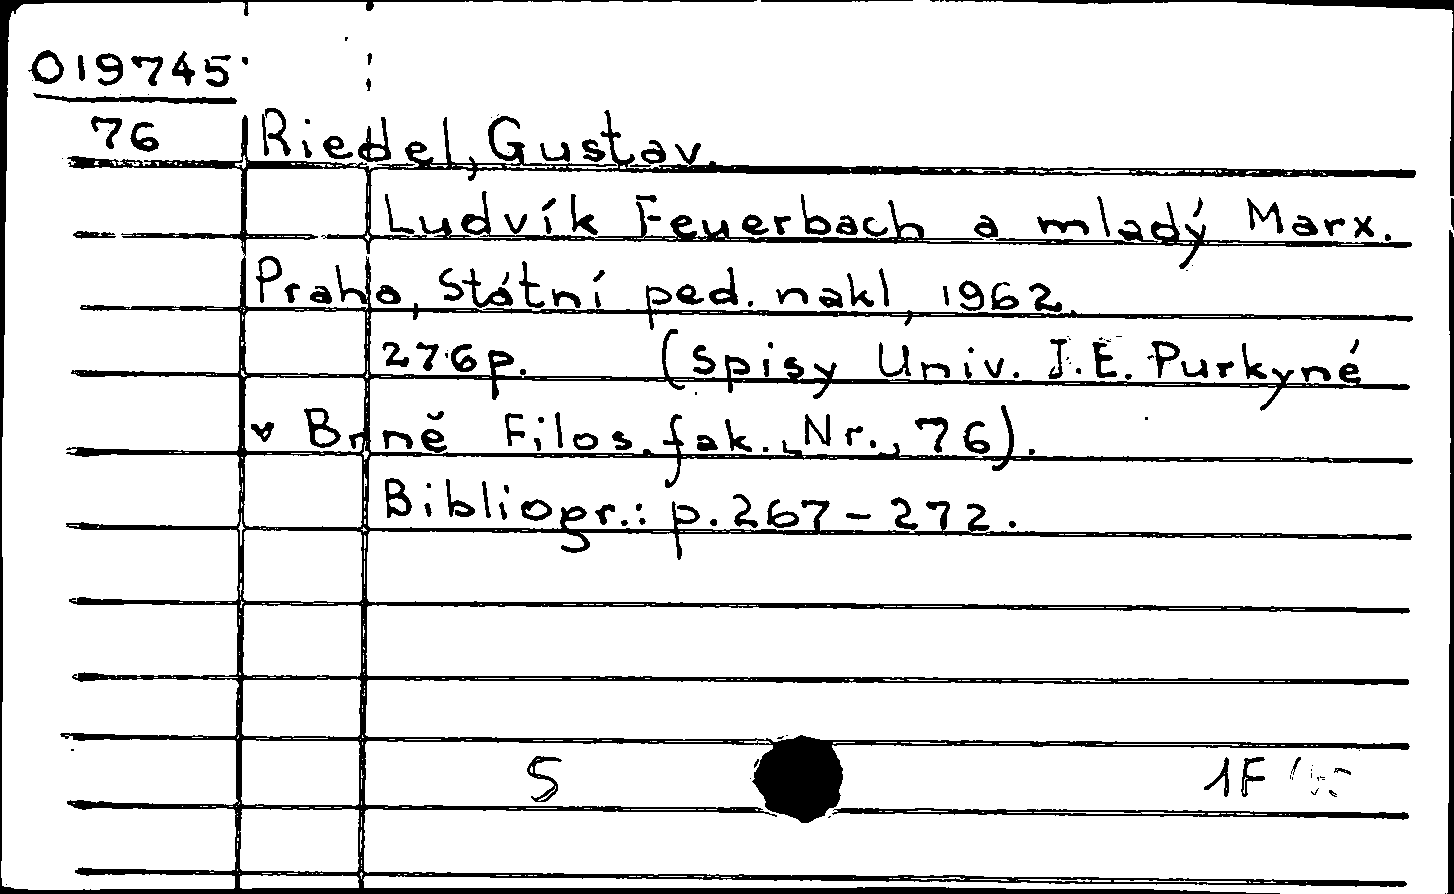 019745
76 Riedel, Gustav.
Ludvík Feuerbach a mladý Marx.
Praha, Státní ped. nakl, 1962.
276p. (Spisy Univ. J.E. Purkyné
v Brně Filos. fak., Nr., 76).
Bibliogr.: p. 267-272.
S 1F